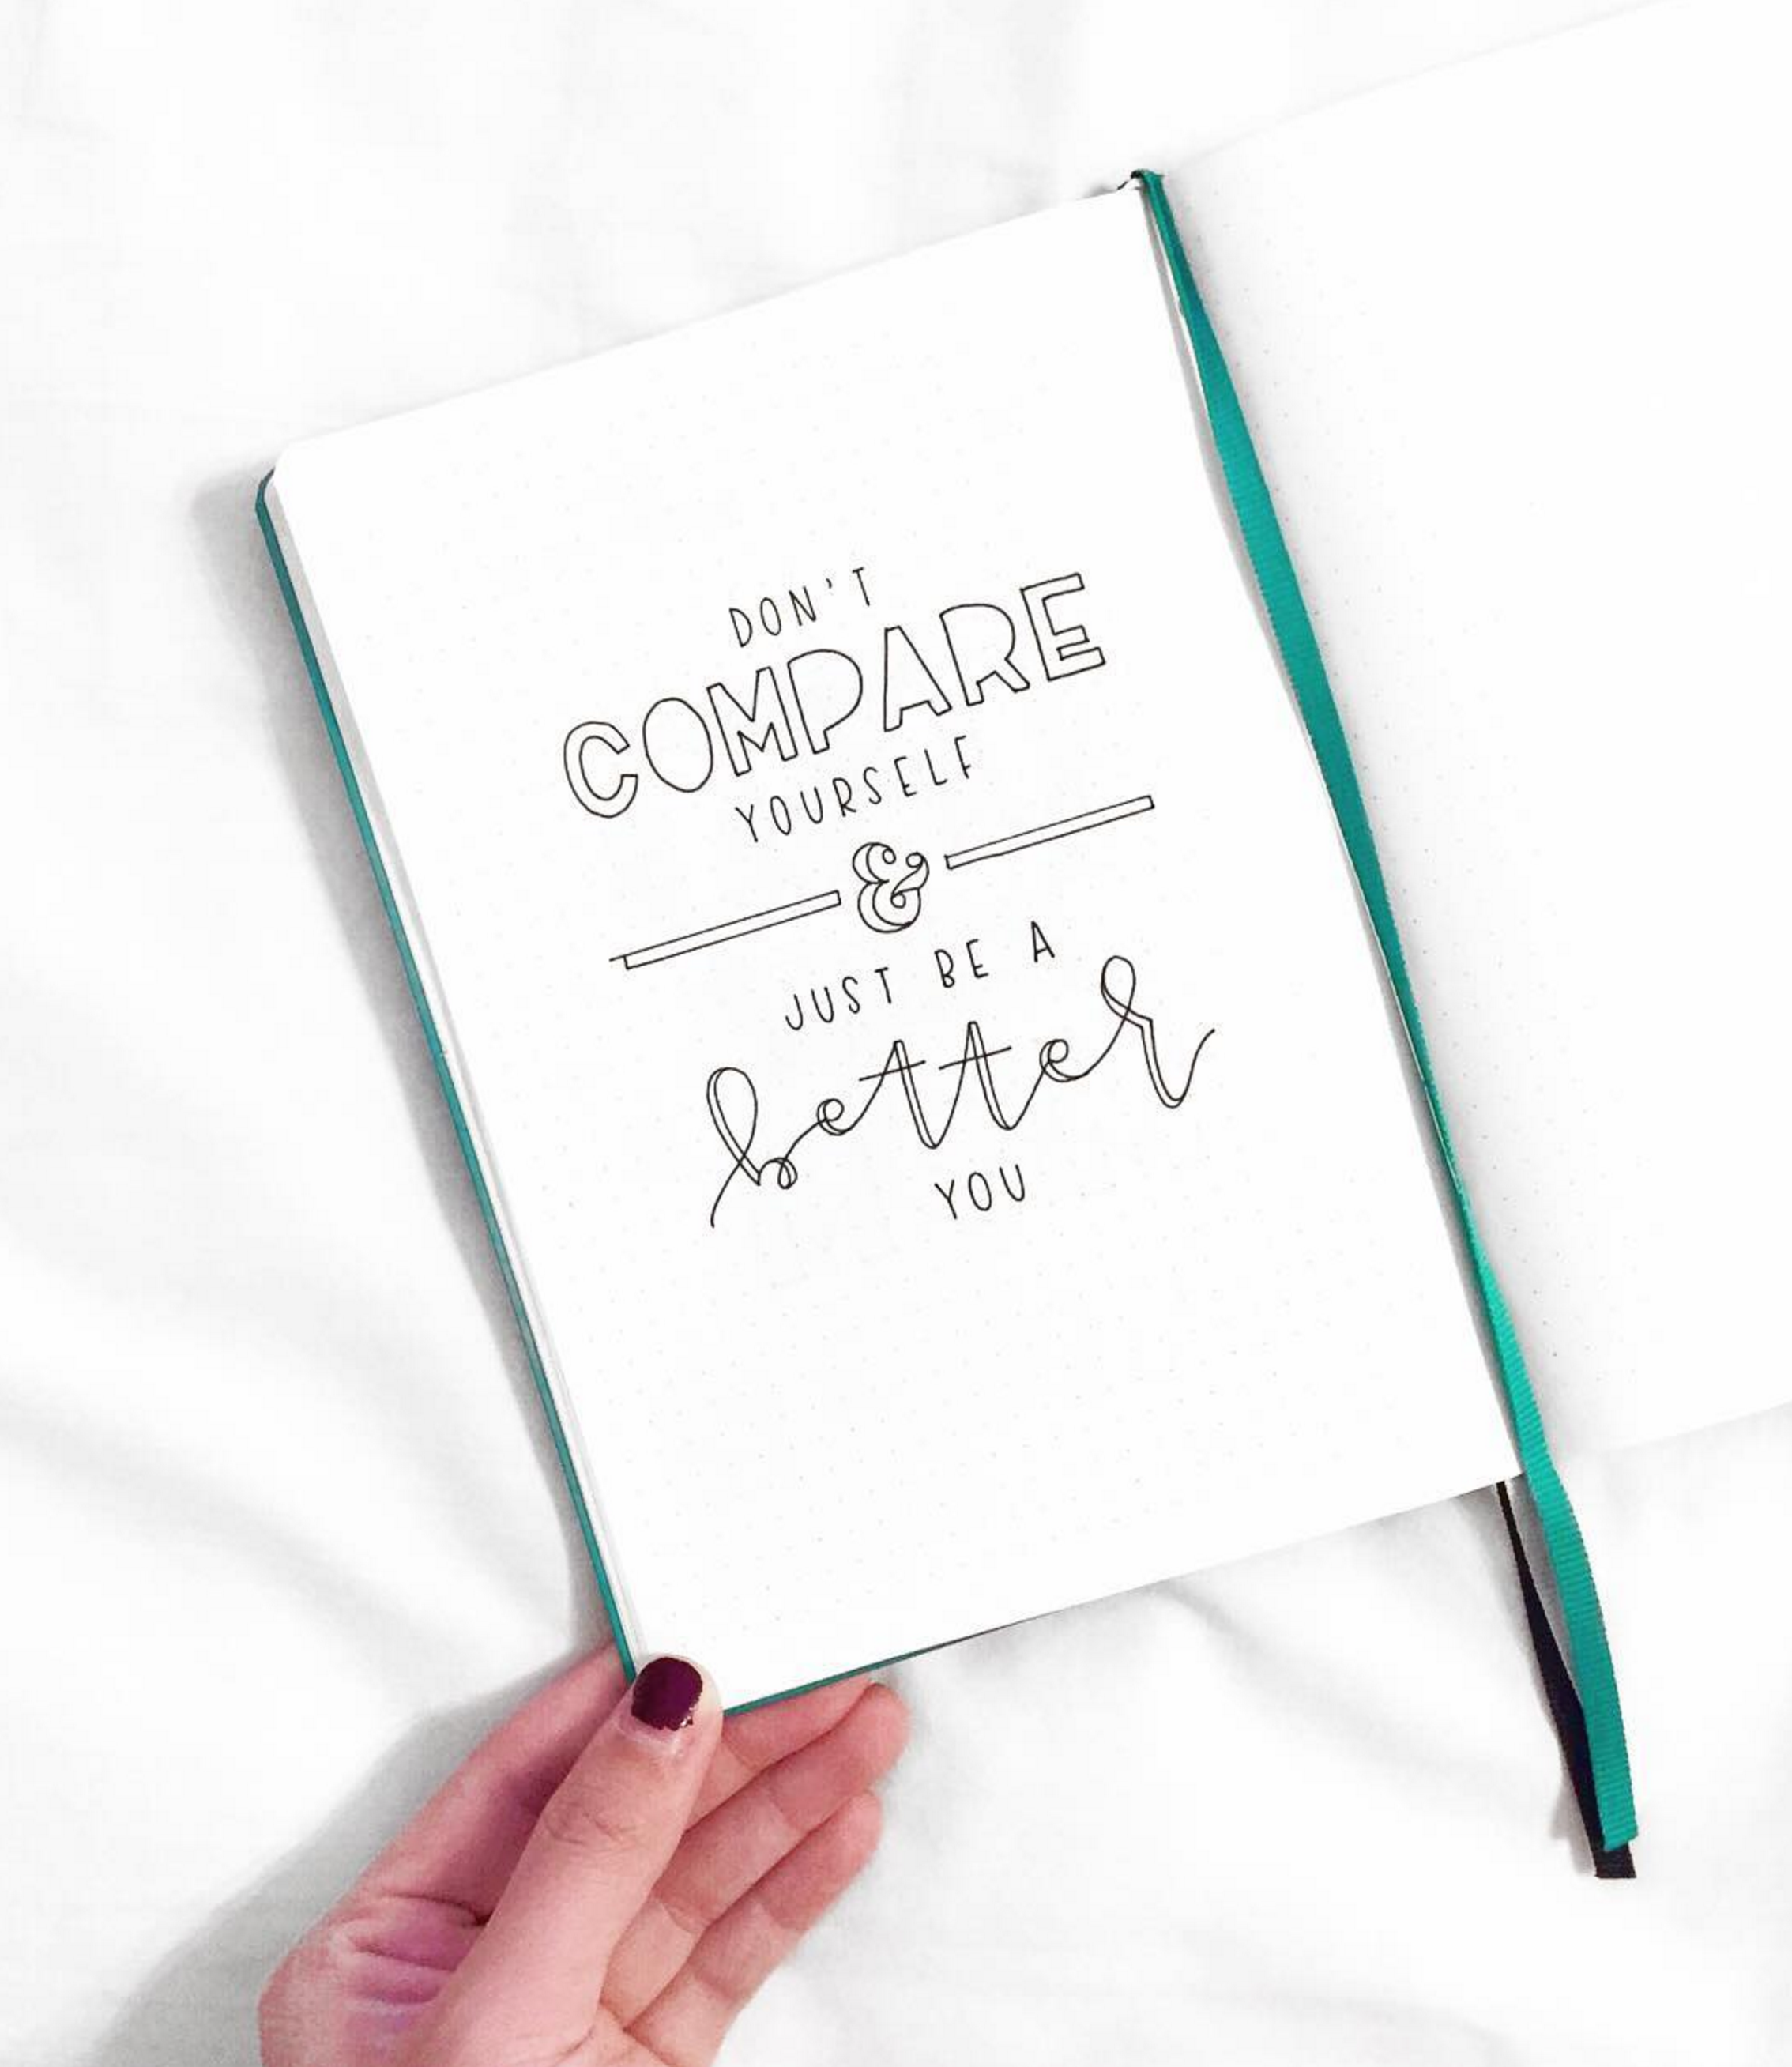 DON'T
COMPARE
YOURSELF
&
JUST BE A
better
YOU